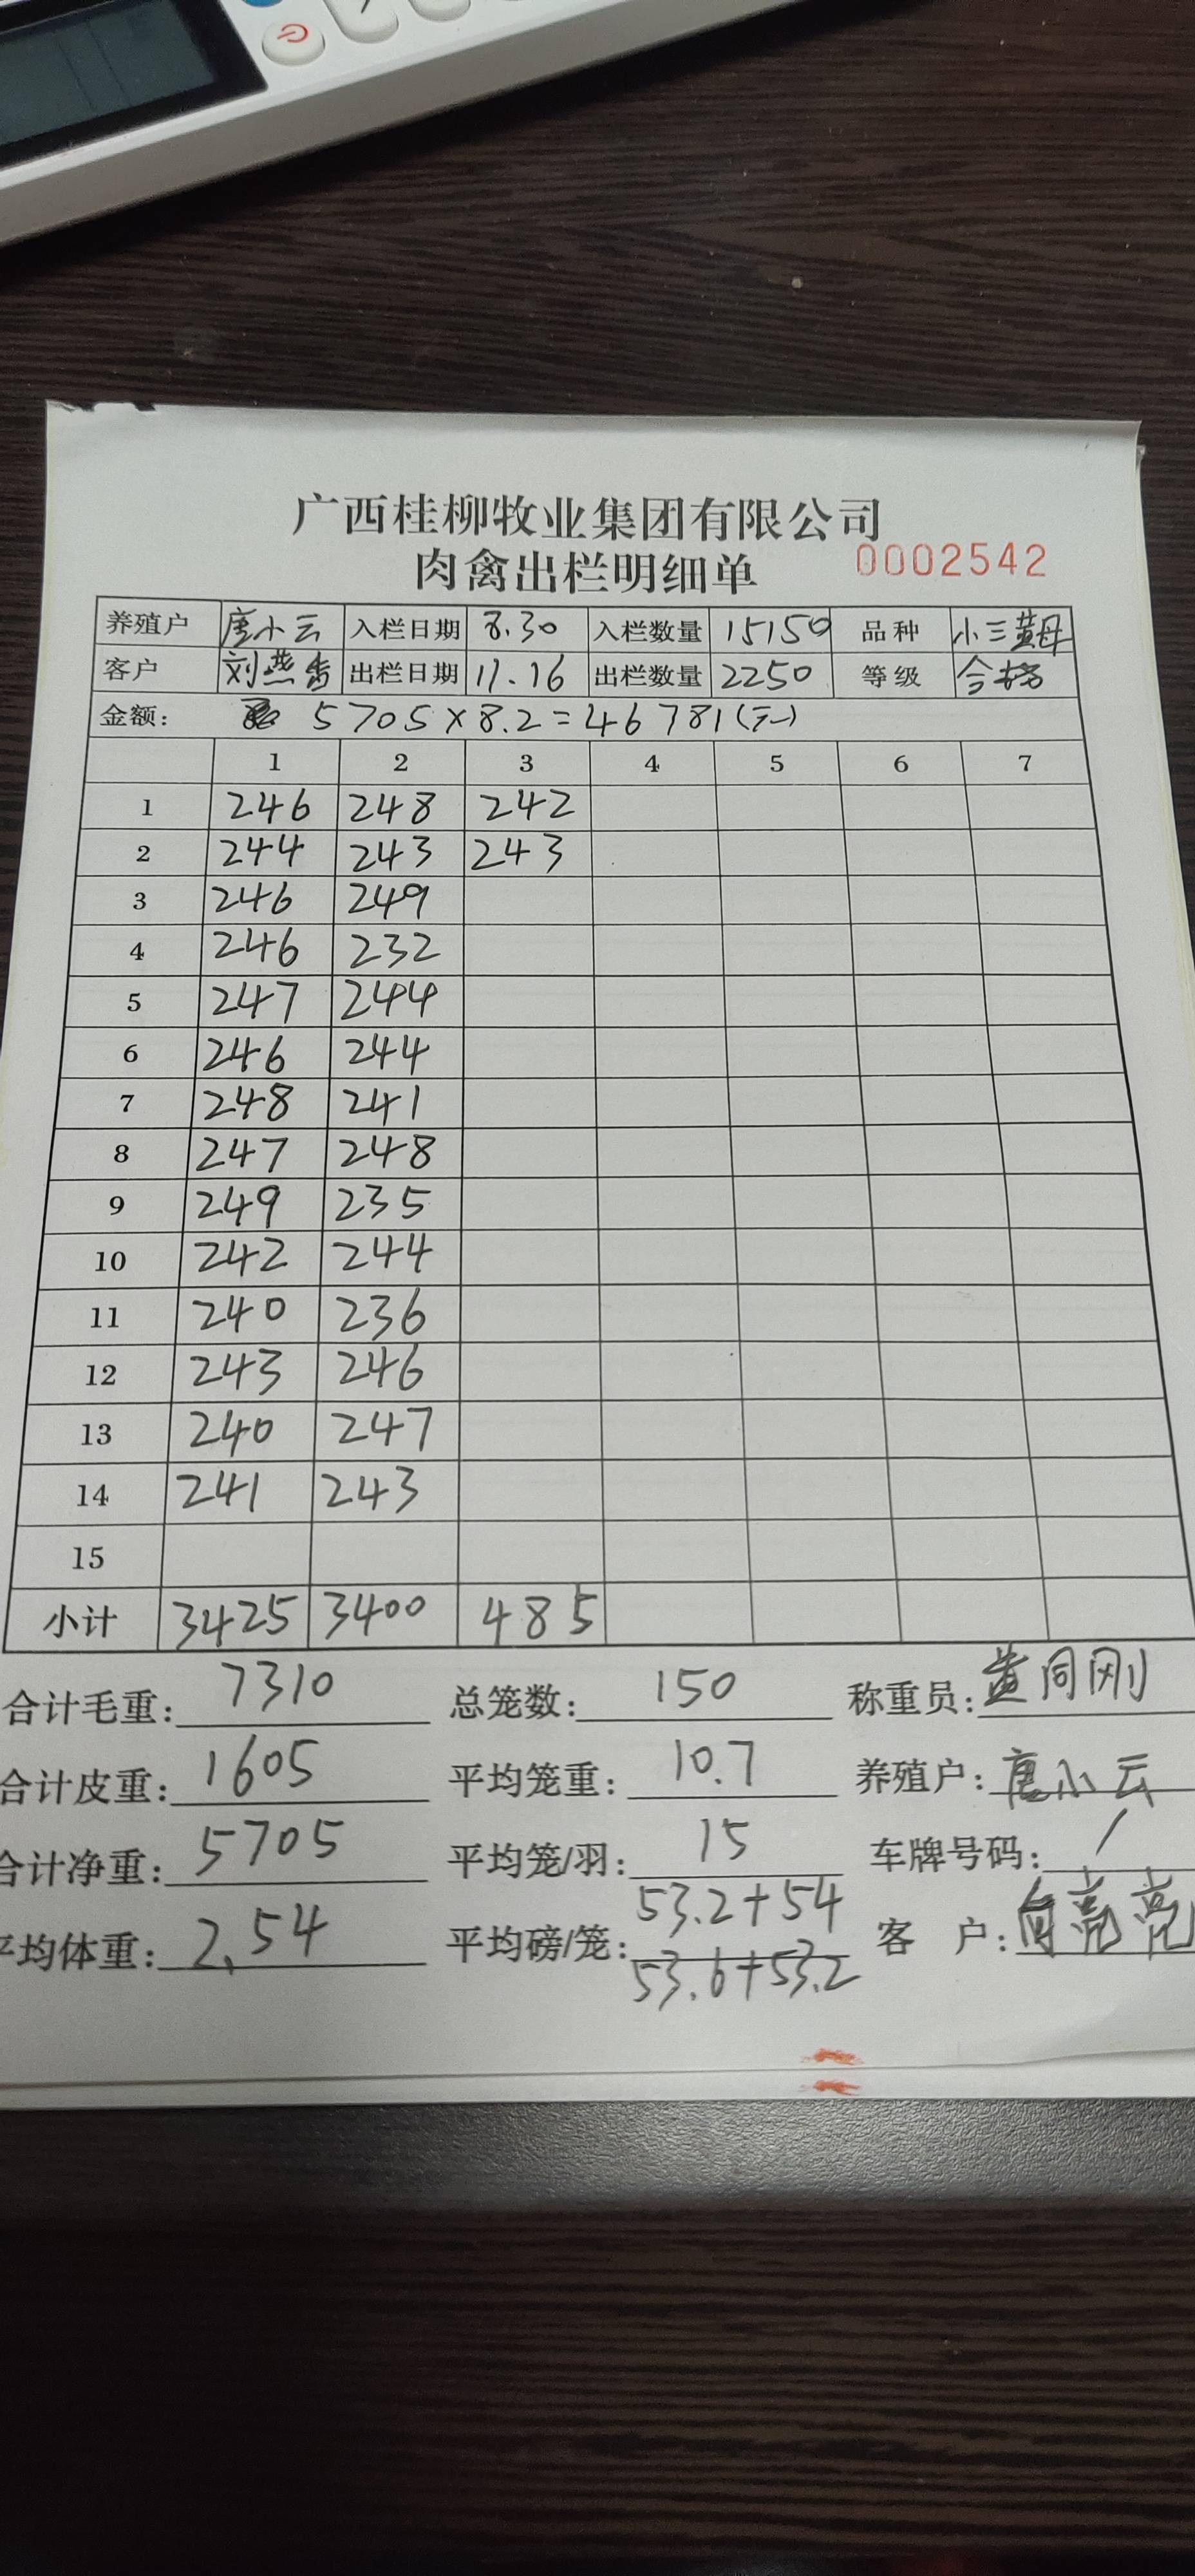 广西桂柳牧业集团有限公司
肉禽出栏明细单 0002542
养殖户 唐小云 入栏日期 8.30 入栏数量 15150 品种 小三黄母
客户 刘燕香 出栏日期 11.16 出栏数量 2250 等级 合格
金额: 5705×8.2=46781(元)
1 2 3 4 5 6 7
1 246 248 242
2 244 243 243
3 246 249
4 246 232
5 247 244
6 246 244
7 248 241
8 247 248
9 249 235
10 242 244
11 240 236
12 243 246
13 240 247
14 241 243
15
小计 3425 3400 485
合计毛重: 7310 总笼数: 150 称重员: 黄同刚
合计皮重: 1605 平均笼重: 10.7 养殖户: 唐小云
合计净重: 5705 平均笼/羽: 15 车牌号码: /
平均体重: 2.54 平均磅/笼: 53.2+54 客户: 向亮亮
53.6+53.2